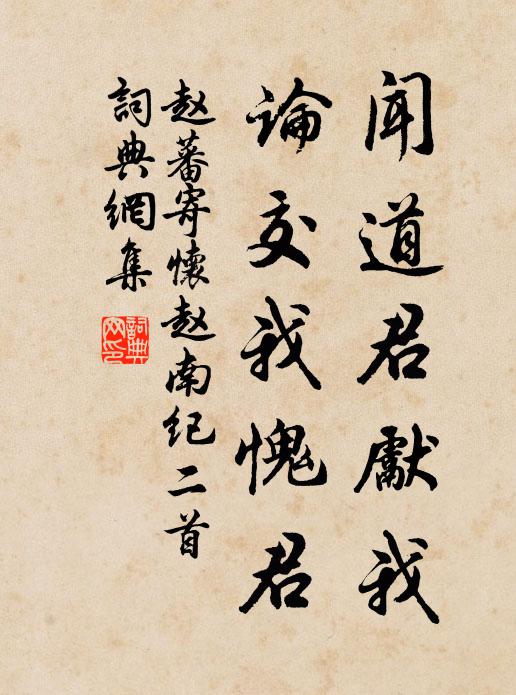 聞道君獻我
論交我愧君
赵蕃寄懷赵南纪二首
詞典網集
詞典
网印